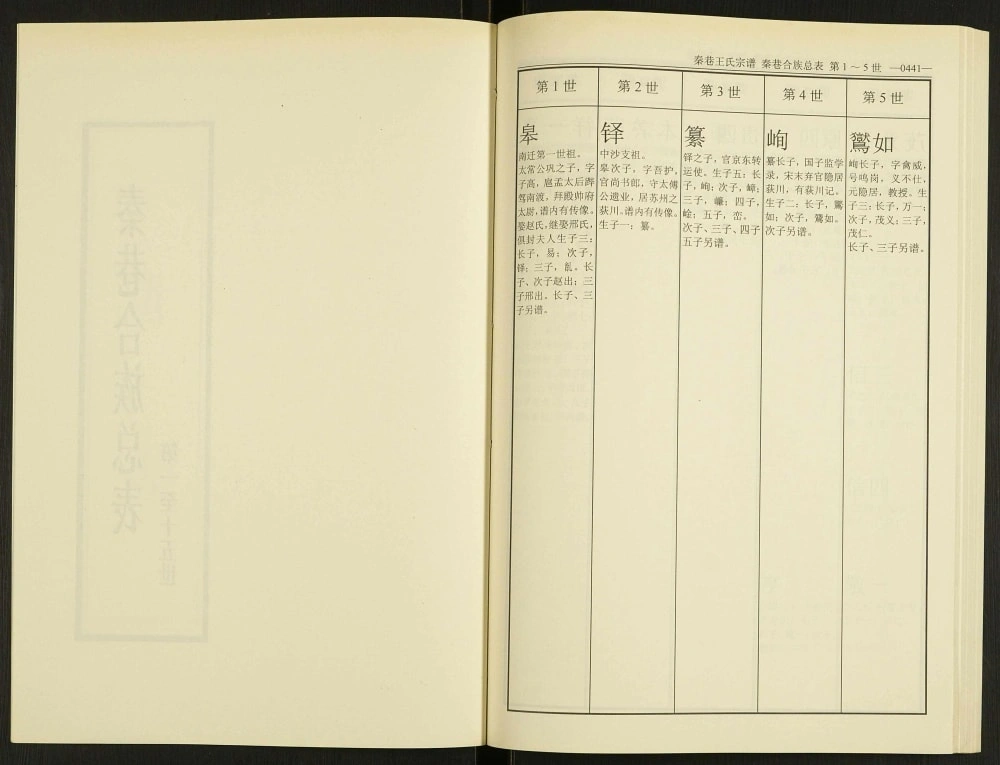 秦巷王氏宗谱 秦巷合族总表 第1～5世 —0441—
第1世
第2世
第3世
第4世
第5世
皋
南迁第一世祖。
太常公巩之子，字
子高，扈孟太后跸
驾南渡，拜殿帅府
太尉，谱内有传像。
娶赵氏，继娶邢氏，
俱封夫人生子三：
长子，易；次子，
铎；三子，亂。长
子、次子赵出；三
子邢出。长子、三
子另谱。
铎
中沙支祖。
皋次子，字吾护，
官尚书郎，守太傅
公遗业，居苏州之
荻川。谱内有传像。
生子一：纂。
纂
铎之子，官京东转
运使。生子五：长
子，峋；次子，嶂；
三子，𪩘；四子，
崯；五子，峦。
次子、三子、四子
五子另谱。
峋
纂长子，国子监学
录，宋末弃官隐居
荻川，有荻川记。
生子二：长子，鸑
如；次子，鸶如。
次子另谱。
鸑如
峋长子，字禽威，
号鸣岗。义不仕，
元隐居，教授。生
子三：长子，万一；
次子，茂义；三子，
茂仁。
长子、三子另谱。
秦巷合族总表
第一至十五世